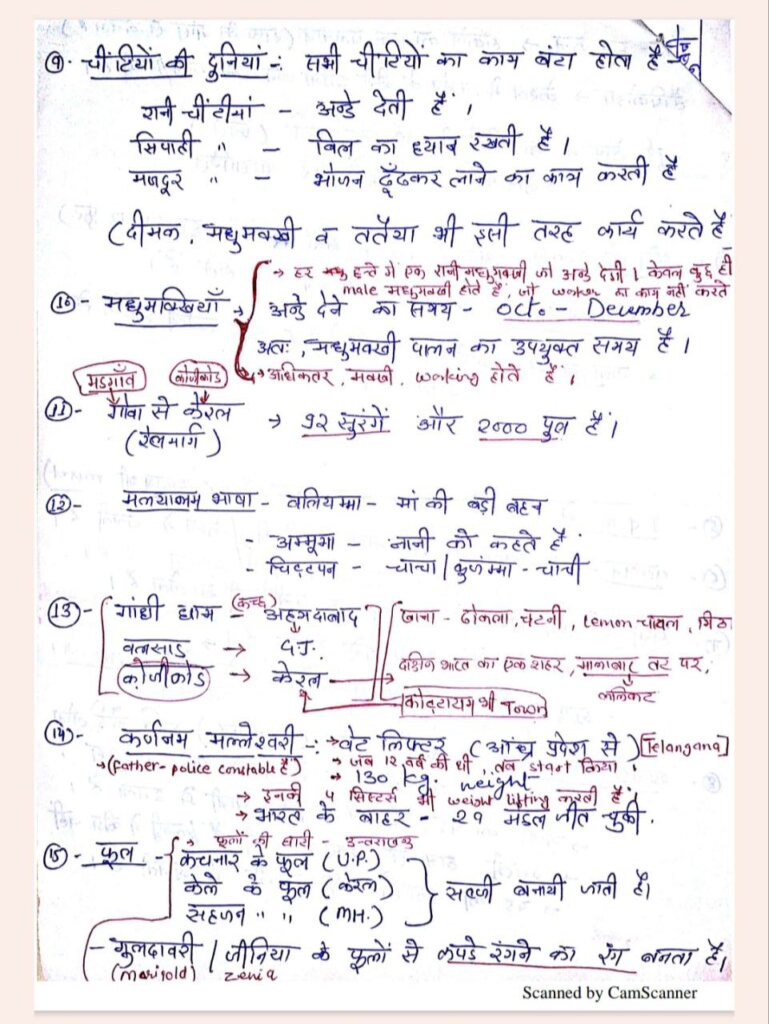 ⑨. चींटियों की दुनियां -: सभी चींटियों का काम बंटा होता है -
रानी चींटीयां - अन्डे देती हैं ।
सिपाही " - बिल का ध्यान रखती हैं ।
मजदूर " - भोजन ढूँढकर लाने का काम करती हैं
(दीमक, मधुमक्खी व ततैया भी इसी तरह कार्य करते हैं
→ हर छत्ते में एक रानी मधुमक्खी जो अन्डे देती । केवल कुछ ही
male मधुमक्खी होते हैं, जो worker का काम नहीं करते
⑩- मधुमक्खियाँ → अन्डे देने का समय - Oct. - December
अतः, मधुमक्खी पालन का उपयुक्त समय है ।
→ अधिकतर, मक्खी, working होते हैं ।
मडगाँव कोजीकोड
⑪- गोवा से केरल → 92 सुरंगें और 2000 पुल हैं ।
(रेलमार्ग)
⑫- मलयालम भाषा - वलियम्मा - मां की बड़ी बहन
- अम्मूमा - नानी को कहते हैं
- चिट्टपन - चाचा / कुंजम्मा - चाची
⑬- गांधी धाम (कच्छ) - अहमदाबाद खाना - ढोकला, चटनी, Lemon चावल, मिठा
वलसाड → GJ. दक्षिण भारत का एक शहर, मालाबार तट पर,
कोजीकोड → केरल कालिकट
कोट्टायम भी Town
⑭- कर्णनम मल्लेश्वरी -: → वेट लिफ्टर (आंध्र प्रदेश से) [Telangana]
→ (father - police constable हैं) → जब 12 वर्ष की थी, तब start किया ।
→ 130 kg. weight
→ इनकी 4 सिस्टर्स भी weight lifting करती हैं
→ भारत के बाहर - 29 मैडल जीत चुकी.
→ फूलों की घाटी - उत्तराखण्ड
⑮- फूल - कचनार के फूल (U.P.)
केले के फूल (केरल) सब्जी बनायी जाती है।
सहजन " " (MH.)
- गुलदावरी / जीनिया के फूलों से कपडे रंगने का रंग बनता है।
(marigold) zenia
Scanned by CamScanner